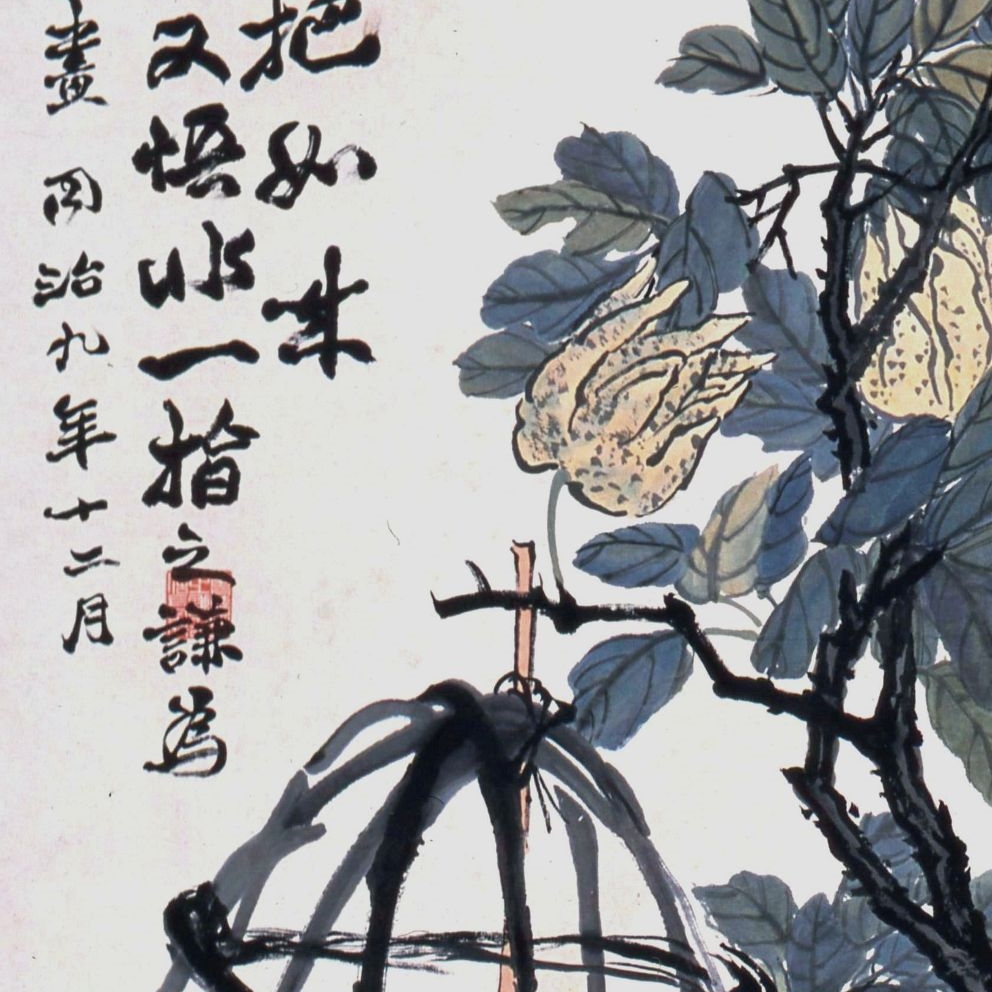 把如来
又悟非一指之謙為
畫同治九年十二月